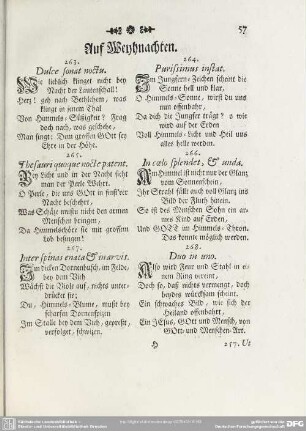 57
Auf Weyhnachten.
263.
Dulce sonat noctu.
Wie lieblich klinget nicht bey
Nacht der Lautenschall!
Herz! geh nach Bethlehem, was
klingt in jenem Thal
Von Himmels-Süßigkeit? Frag
doch nach, was geschehe,
Man singt: Dem grossen GOtt sey
Ehre in der Höhe.
265.
Thesauri quoque nocte patent.
Bey Licht und in der Nacht sieht
man der Perle Wehrt.
O Perle, die uns GOtt in finst'rer
Nacht beschehrt,
Was Schätze müssen nicht den armen
Menschen bringen,
Da Himmelschöre sie mit grossem
Lob besingen!
267.
Inter spinas enata & marvis.
Im dicken Dornenbusch, im Felde,
bey dem Vieh
Wächst die Rose auf, nichts unter-
drücket sie;
Du, Himmels-Blume, must bey
scharfen Dornenspitzen
Im Stalle bey dem Vieh, gepreßt,
verfolget, schwitzen.
264.
Purissimus instat.
Im Jungfern-Zeichen scheint die
Sonne hell und klar,
O Himmels-Sonne, wirst du uns
nun offenbahr,
Da dich die Jungfer trägt? o wie
wird auf der Erden
Voll Himmels-Licht und Heil uns
alles hell werden.
266.
In cœlo splendet, & unda.
Am Himmel ist nicht nur der Glanz
vom Sonnenschein,
Ihr Strahl fällt auch voll Glanz ins
Bild der Fluth herein.
So ist des Menschen Sohn ein
armes Kind auf Erden,
Und GOtt im Himmels-Thron.
Das konnte möglich werden.
268.
Duo in uno.
Also wird Feur und Stahl in ei-
nen Ring vereint,
Doch so, daß nichts vermengt, doch
beydes würcksam scheint.
Ein schwaches Bild, wie sich der
Heiland offenbahrt,
Ein JEsus, GOtt und Mensch, von
GOtt- und Menschen-Art.
H
217. Ut